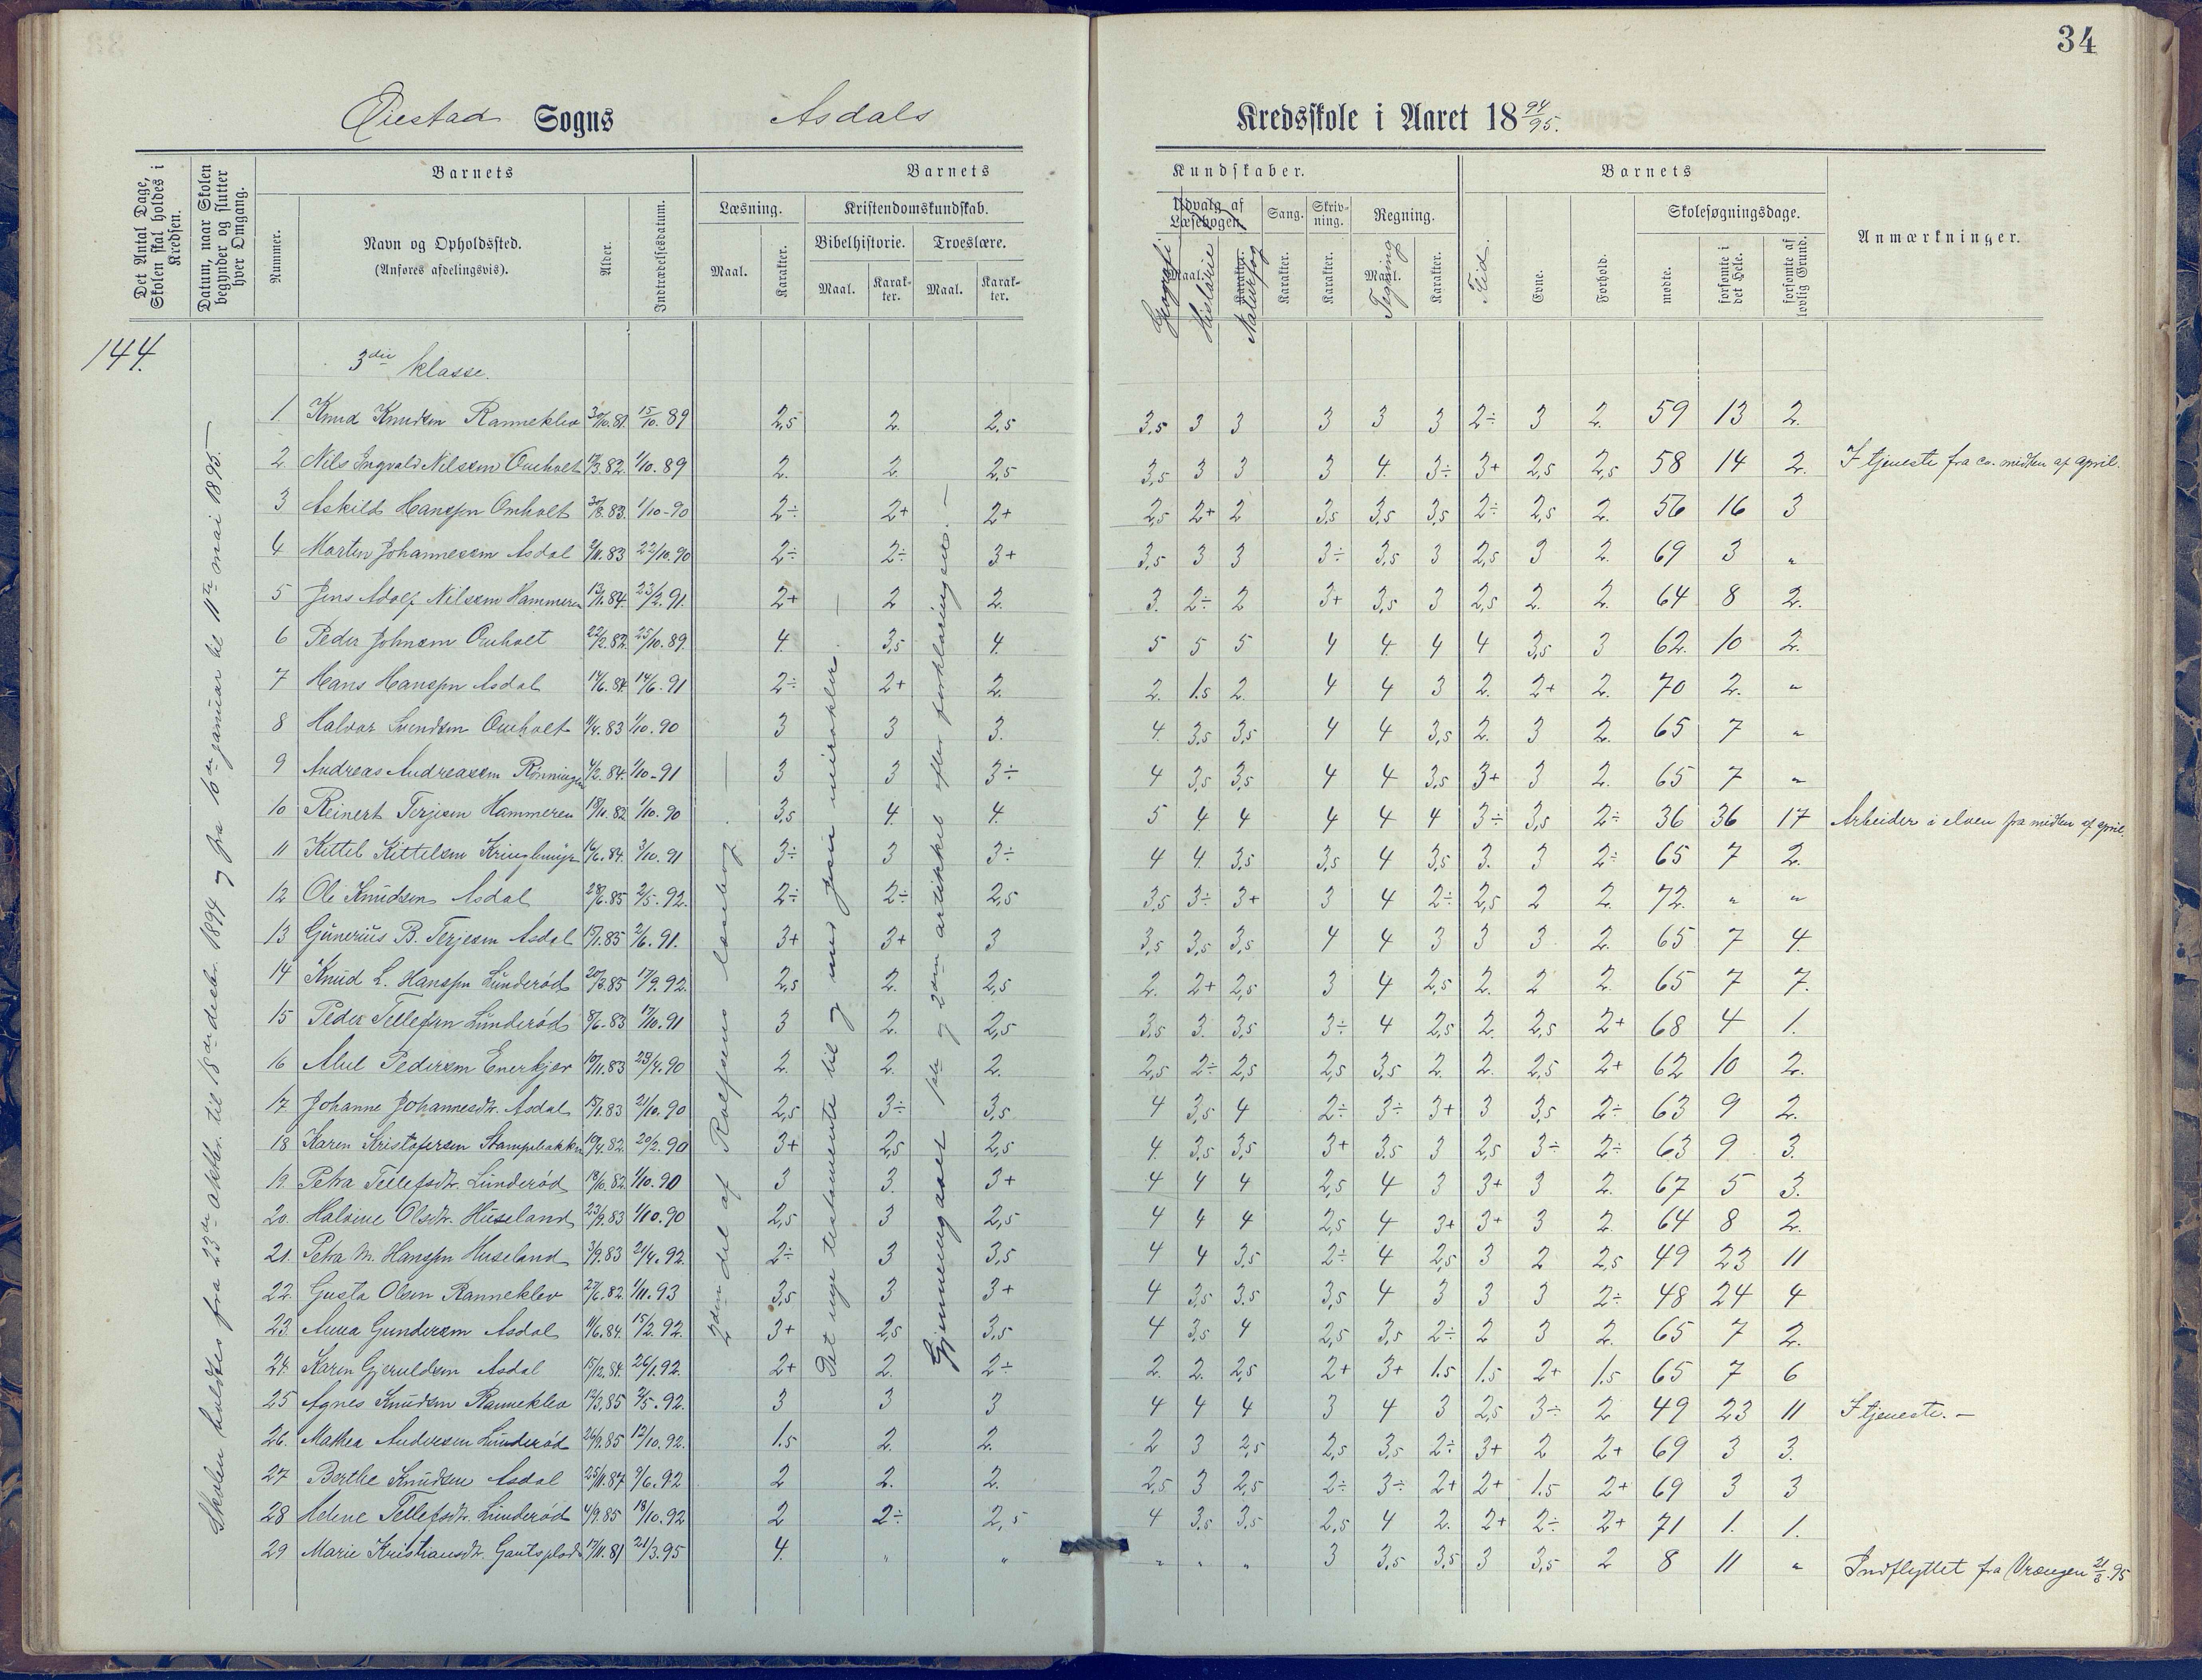 34
Øiestad Sogns Asdals Kredsskole i Aaret 18 94/95.
Det Antal Dage, Skolen skal holdes i Kredsen.
Datum, naar Skolen begynder og slutter hver Omgang.
Barnets
Nummer.
Navn og Opholdssted.
(Anføres afdelingsvis).
Alder.
Indtrædelsesdatum.
Barnets Kundskaber.
Læsning.
Maal. Karakter.
Kristendomskundskab.
Bibelhistorie. Troeslære.
Maal. Karakter. Maal. Karakter.
Udvalg af Læsebogen.
Maal. Karakter.
Geografi Historie Naturfag
Sang. Skrivning. Regning.
Karakter. Karakter. Maal. Karakter.
Tegning
Barnets
Flid. Evne. Forhold.
Skolesøgningsdage.
mødte. forsømte i det Hele. forsømte af lovlig Grund.
Anmærkninger.
144.
3die klasse.
Skolen holdtes fra 23de oktbr. til 18de decbr. 1894 og fra 10de januar til 11te mai 1895.—
2den del af Rolfsens læsebog. —
Det nye testamente til og med Jesu mirakler. —
Gjennemgaaet 1ste og 2den artikkel efter forklaringen. —
1 Knud Knudsen Ranneklev 30/10.81. 15/10.89 2,5 2. 2,5 3,5 3 3 3 3 3 2÷ 3 2. 59 13 2.
2 Nils Ingvald Nilssen Omholt 17/3.82. 1/10.89 2. 2. 2,5 3,5 3 3 3 4. 3÷ 3+ 2,5 2,5 58 14 2. I tjeneste fra ca. midten af april.
3 Askild Hanssen Omholt 30/8.83. 1/10-90 2÷ 2+ 2+ 2,5 2+ 2 3,5 3,5 3,5 2÷ 2,5 2. 56 16 3
4 Morten Johannesen Asdal 2/11.83 22/10.90 2÷ 2÷ 3+ 3,5 3 3 3÷ 3,5 3 2,5 3 2. 69 3 "
5 Jens Adolf Nilssen Hammeren 13/1.84. 23/2.91. 2+ 2 2. 3. 2÷ 2 3+ 3,5 3 2,5 2. 2. 64 8 2.
6 Peder Johnsen Omholt 22/2.82. 25/10.89. 4. 3,5 4. 5 5 5 4 4. 4 4 3,5 3 62. 10 2.
7 Hans Hanssen Asdal 14/6.84 14/6.91 2÷ 2+ 2. 2. 1.5 2. 4 4 3 2. 2+ 2. 70 2. "
8 Halvor Svendsen Omholt 11/4.83 1/10.90 3 3 3. 4. 3,5 3,5 4 4 3,5 2. 3 2. 65 7 "
9 Andreas Andreasen Rønningen 4/2.84. 1/10-91 3 3 3÷ 4 3,5 3,5 4 4 3,5 3+ 3 2. 65 7 "
10 Reinert Terjesen Hammeren 18/11.82 1/10.90 3,5 4. 4. 5 4 4 4 4 4 3÷ 3,5 2÷ 36 36 17 Arbeider i elven fra midten af april.
11 Kittel Kittelsen Kringlemyr 16/6.84. 3/10.91 3÷ 3 3÷ 4 4. 3,5 3,5 4 3,5 3. 3 2÷ 65 7 2.
12 Ole Knudsen Asdal 28/6.85 2/5.92. 2÷ 2÷ 2,5 3,5 3÷ 3+ 3 4 2÷ 2,5 2 2. 72. " "
13 Gunerius B. Terjesen Asdal 15/1.85 2/6.91. 3+ 3+ 3 3,5 3,5 3,5 4 4 3 3 3 2. 65 7 4.
14 Knud L. Hanssen Lunderød 20/3.85 17/9.92. 2,5 2. 2,5 2. 2+ 2,5 3 4 2,5 2. 2 2. 65 7 7.
15 Peder Tellefsen Lunderød 8/6.83 17/10.91 3 2. 2,5 3,5 3. 3,5 3÷ 4 2,5 2. 2,5 2+ 68 4 1.
16 Abel Pedersen Enerkjær 10/11.83 29/4.90 2. 2. 2. 2,5 2÷ 2,5 2,5 3,5 2. 2. 2,5 2+ 62 10 2.
17 Johanne Johannesdtr. Asdal 15/1.83 21/10.90 2,5 3÷ 3,5 4 3,5 4 2÷ 3÷ 3+ 3 3,5 2÷ 63 9 2.
18 Karen Kristofersen Stampebakken 10/4.82. 20/2.90 3+ 2,5 2,5 4. 3,5 3,5 3+ 3.5 3 2,5 3÷ 2÷ 63 9 3.
19. Petra Tellefsdtr. Lunderød 18/10.82. 1/10.90 3 3. 3+ 4 4 4 2,5 4 3 3+ 3 2. 67 5 3.
20. Halvine Olsdtr. Huseland 23/9.83 1/10.90 2,5 3 2,5 4 4 4 2,5 4 3+ 3+ 3 2. 64 8 2.
21. Petra M. Hanssen Huseland 3/9.83 21/4.92. 2÷ 3 3,5 4 4 3,5 2÷ 4 2,5 3 2 2,5 49 23 11
22. Gusta Olsen Ranneklev 27/6.82. 1/11.93 3,5 3 3+ 4 3,5 3.5 3,5 4 3 3 3 2÷ 48 24 4
23. Anna Gundersen Asdal 11/6.84. 15/2.92. 3+ 2,5 3,5 4 3,5 4 2,5 3,5 2÷ 2 3 2. 65 7 2.
24. Karen Gjeruldsen Asdal 15/12.84. 26/1.92. 2+ 2. 2÷ 2. 2. 2,5 2+ 3+ 1.5 1.5 2+ 1.5 65 7 6
25 Agnes Knudsen Ranneklev 12/3.85 2/5.92. 3 3 3 4 4 4 3 4 3 2,5 3÷ 2 49 23 11 I tjeneste. —
26. Mathea Andersen Lunderød 26/9.85 12/10.92. 1.5 2. 2. 2 3 2,5 2,5 3,5 2÷ 3+ 2 2+ 69 3 3.
27 Berthe Knudsen Asdal 25/11.87 9/6.92 2 2. 2. 2,5 3 2,5 2÷ 3÷ 2+ 2+ 1.5 2+ 69 3 3
28 Helene Tellefsdtr. Lunderød 4/9.85 18/10.92 2 2÷ 2,5 4 3,5 3,5 2,5 4 2. 2+ 2÷ 2+ 71 1. 1.
29 Marie Kristiansdtr. 17/11.81 21/3.95 4. " " " " " 3 3,5 3,5 3 3,5 2 8 11 " Indflyttet fra Vrængen 21/3.95